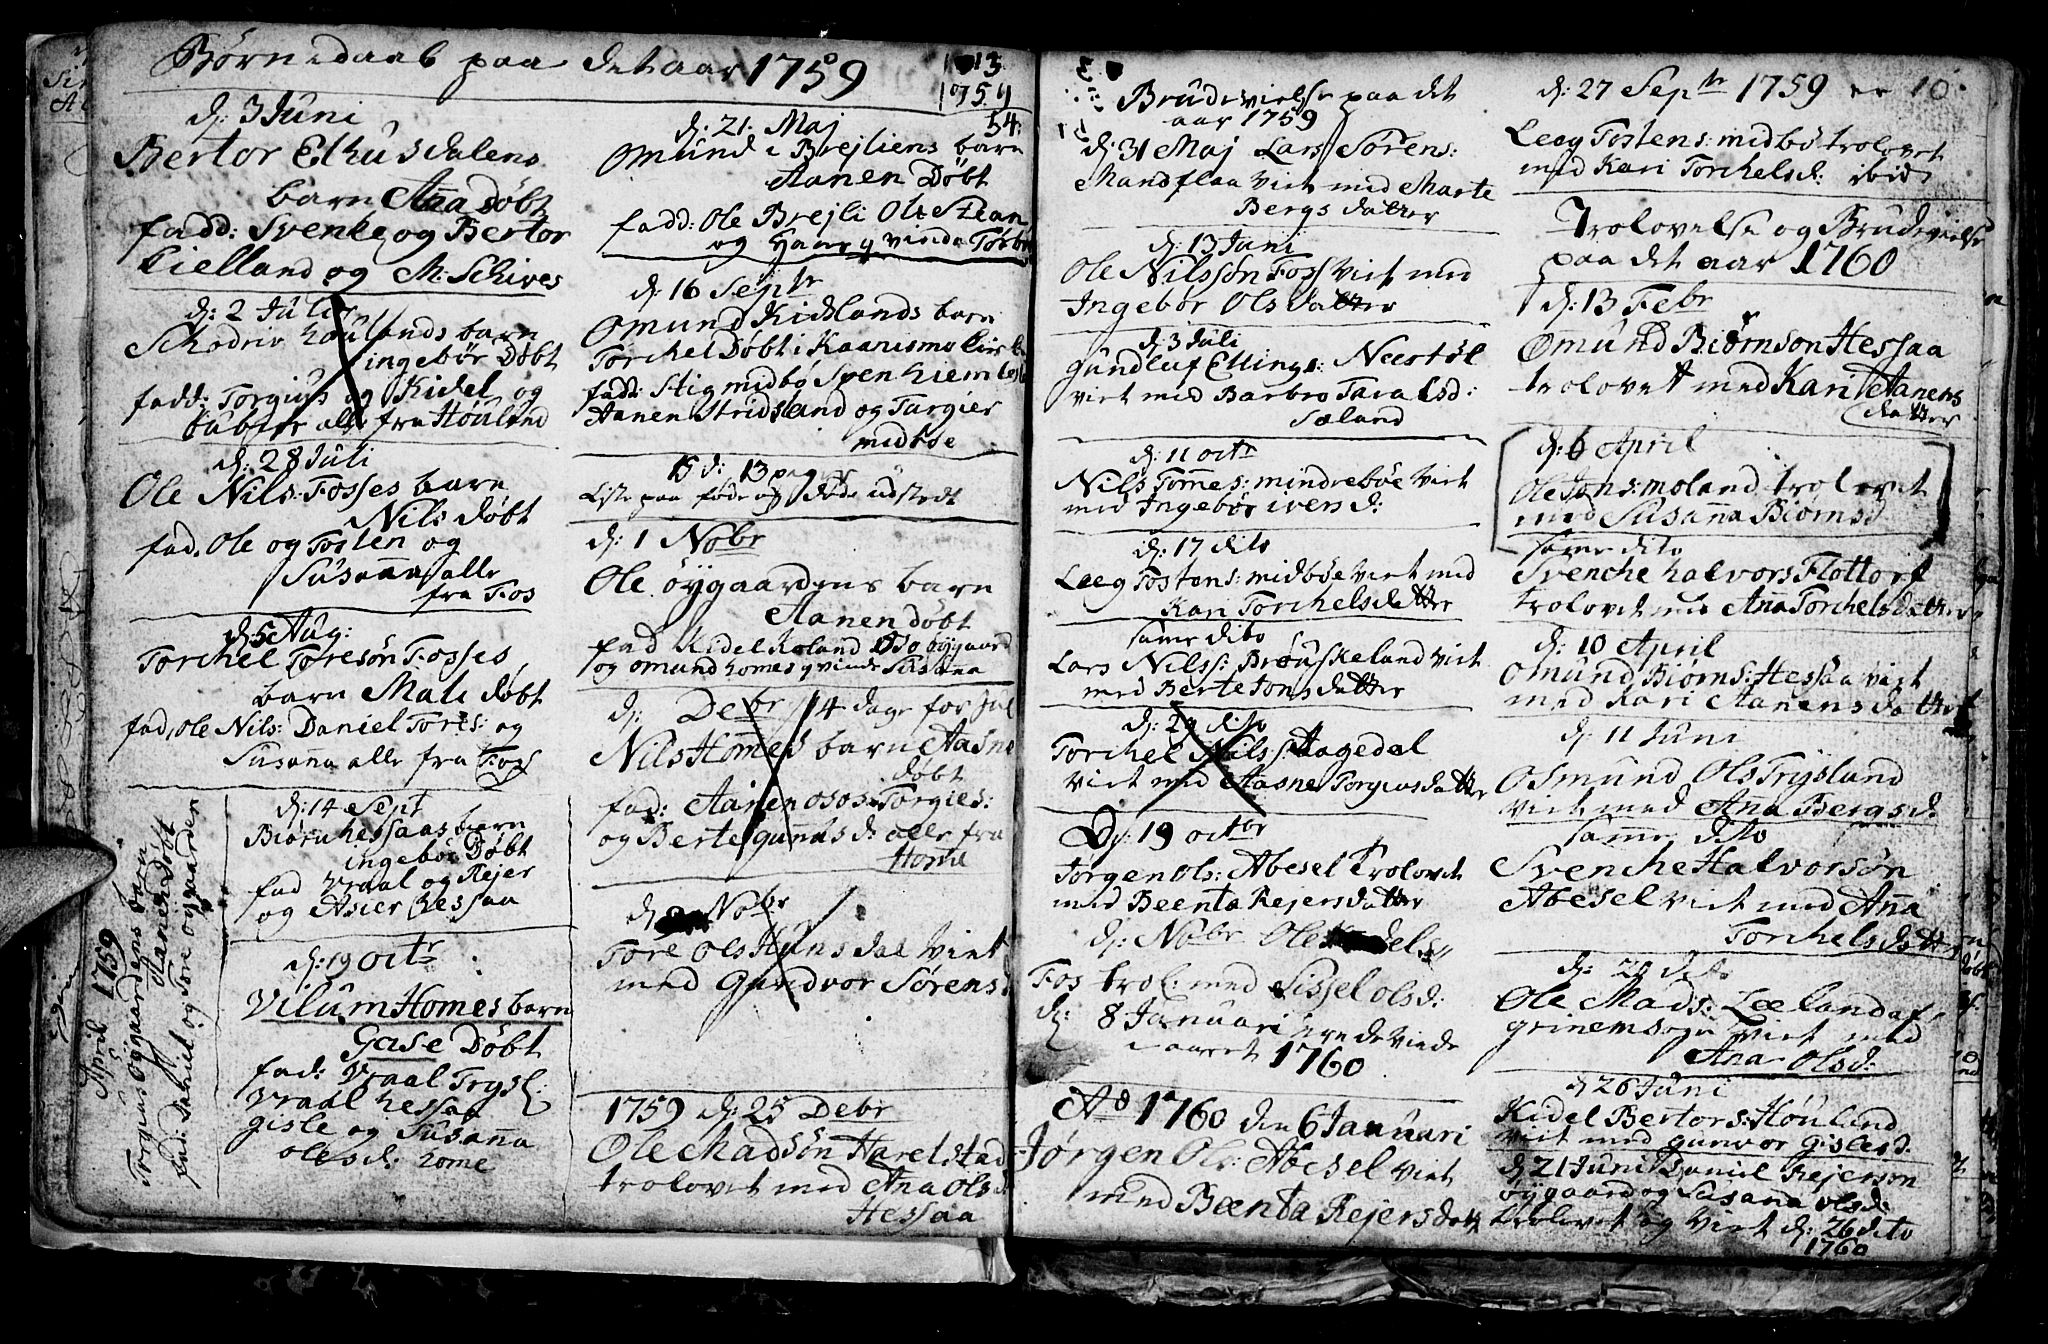 Børnedaab paa det aar 1759
d: 3 Juni
Bertor Elhusdalens
barn Ana Døbt
fadd: Svenke og Bertor
Kielland og M: Schives
d: 2 Juli
Schodriv houlands barn
ingebør Døbt
fadd: Torgius og Kidel og
alle fra Høulend
d: 28 Juli
Ole Nils: Fosses barn
Nils døbt
fad. Ole og Tosten og
Susanna alle
fra Fos
d: 5 Aug:
Torchel Toresøn Fosses
barn Mali døbt
fad, Ole Nils: Daniel Torts: og
Susanna alle fra Fos
April 1759
Torgius øygaardens barn
Aanen Døbt
fad: Gabriel og Tore øygaarden
d: 14 Sept
Biørn hessaas barn
ingebør Døbt
fad Vraal og Rejer
og Asier Hessaa
d: 19 octr
Vilum Homes barn
Gase Døbt
fad: Vraal Trysl:
Vraal hessaa
gisle og Susanna
olesd: home
13
1759
54:
d: 21. Maj
Omund i Brejliens barn
Aanen Døbt
fadd: Ole Brejli Ole Stean
og Haares qvinde Torbor
d: 16 Septr
Omund Kidslands barn
Torchel Døbt i Kaarismo Kirke
fadd: Stig midbø Sven hiem
Aanen Stridsland og Targier
midbøe
15 d: 13 pag
Liste paa føde og døde udstedt
d: 1 Nobr
Ole øygaardens barn
Aanen døbt
fad Kidel Roland øygaard
og omund homes qvinde Susanna
d: Debr 14 dage for jul
Nils Homes barn Aasne
døbt
fad: Aanen osos: Torgies:
og Berte gunnuls d: alle fra
Home
d: Nobr
Tore Ols Hunsdal Virt
med Gundvor Sørens
1759 d: 25 Debr
Ole Madsøn Harelstad
trolovet med Ana Olsd
Hessaa
Brudevielse paa det
aar 1759
d: 31 Maj Lars Sørens:
Mandflaa Virt med Marte
Bergs datter
d: 13 Juni
Ole Nilssøn Foss Virt med
Ingebør Olsdatter
d: 3 Juli
Gundluf Ellings: Neestøl
virt med Barbro Taralsd:
Sæland
d: 11 octr
Nils Tommes: mindrebøe virt
med Ingebør ivers d:
d: 17 dito
Leeg Tostens: midbøe virt med
Kari Torchelsdatter
same dito
Lars Nilss: Brøuskeland virt
med Berte Jonsdatter
d: 24 dito
Torchel Nilss: Aagedal
virt med Aasne Torgiusdatter
D: 19 octbr
Jørgen Ols: Abesel trolovet
med Beenta Rejersdatter
d: Nobr Ole
Fos trol: med Sissel olsd:
d: 8 Januari
i aaret 1760
Ao 1760 den 6 Januari
Jørgen Ols: Abesel virt
med Beenta Rejersdatt
d: 27 Septr 1759 10
Leeg Tostens: midbø trolovet
med Kari Torchelsd: ibid
Trolovelse og Brudevielse
paa det aar 1760
d: 13 Febr
Omund Biørnson Hessaa
trolovet med Kari Aanens
datter
d: 6 April
Ole Jons: moland trolovet
med Susanna Biørnsd
same dito
Svenche halvors Flottorf
trolovet med Anna Torchelsdatter
d: 10 April
Omund Biørns: Hessaa virt
med Kari Aanensdatter
d: 11 Juni
Osmund Ols Trysland
virt med Ana Bergsd:
same dito
Svenche Halvorsøn
Abesel virt med Anna
Torchelsdatter
d: 24 dito
Ole Mads: Leeland af
grinem sogn virt med
Ana Olsd:
d 26 Juni
Kidel Bertors: Høuland
virt med gunvor Gislesd:
d 21 Juni Daniel Rejerson
øygaard og Susana olsd:
trolovet og virt d: 26 dito
1760